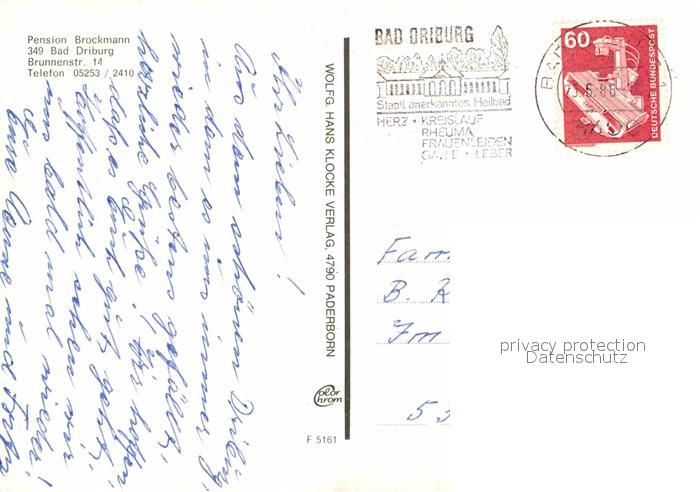 Pension Brockmann
349 Bad Driburg
Brunnenstr. 14
Telefon 05253/2410
Ihr Lieben!
Aus dem schönen Driburg,
in dem es uns immer
wieder bestens gefällt,
herzliche Grüße! Wir hoffen,
daß es Euch gut geht.
Hoffentlich sehen wir
uns bald mal wieder!
Eure Änne und
WOLFG. HANS KLOCKE VERLAG, 4790 PADERBORN
color
chrom
F 5161
BAD DRIBURG
Staatl. anerkanntes Heilbad
HERZ • KREISLAUF
RHEUMA
FRAUENLEIDEN
GALLE • LEBER
60
DEUTSCHE BUNDESPOST
Fam.
B. K
Im
53
privacy protection
Datenschutz